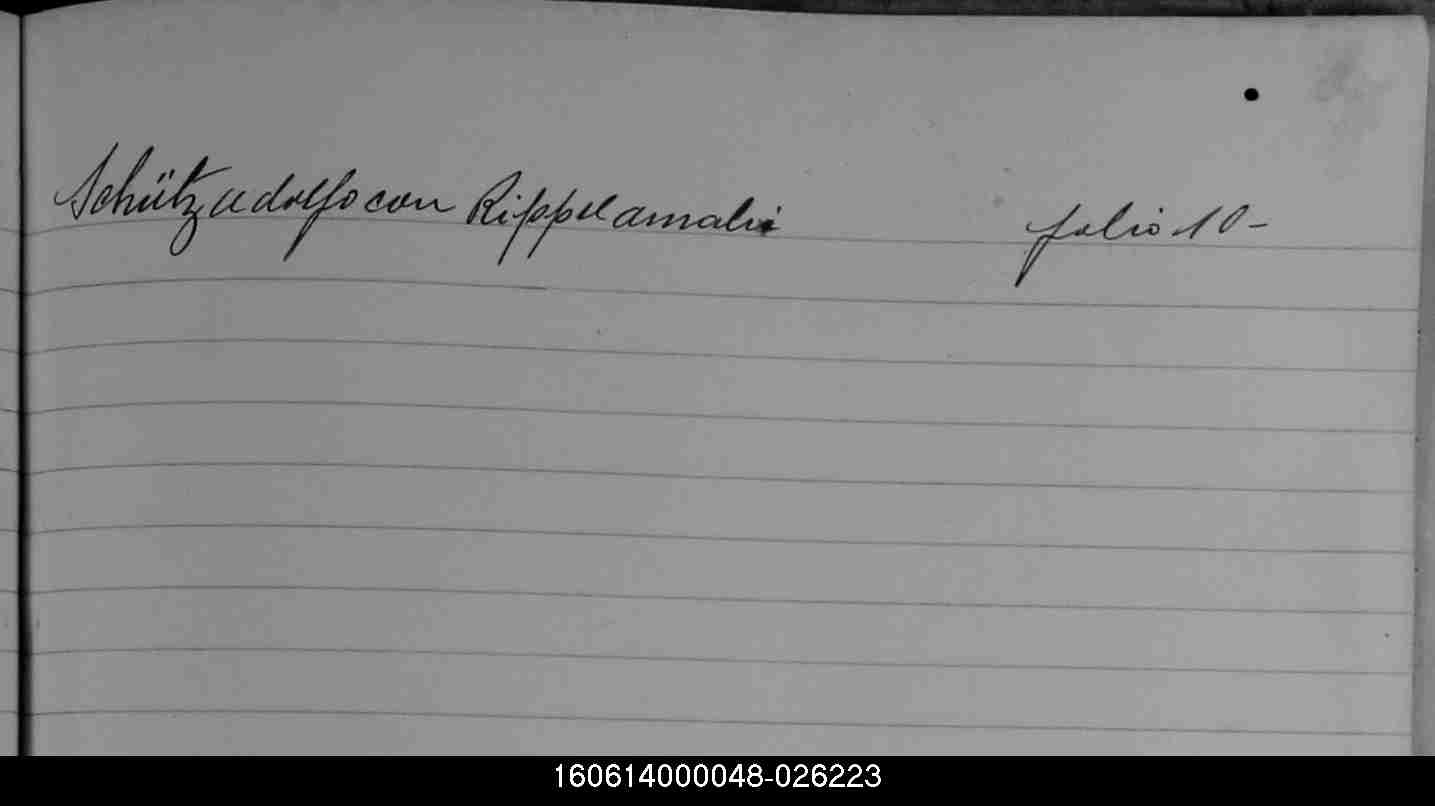 Schütz adolfo con Rippel amali folio 10-
160614000048-026223